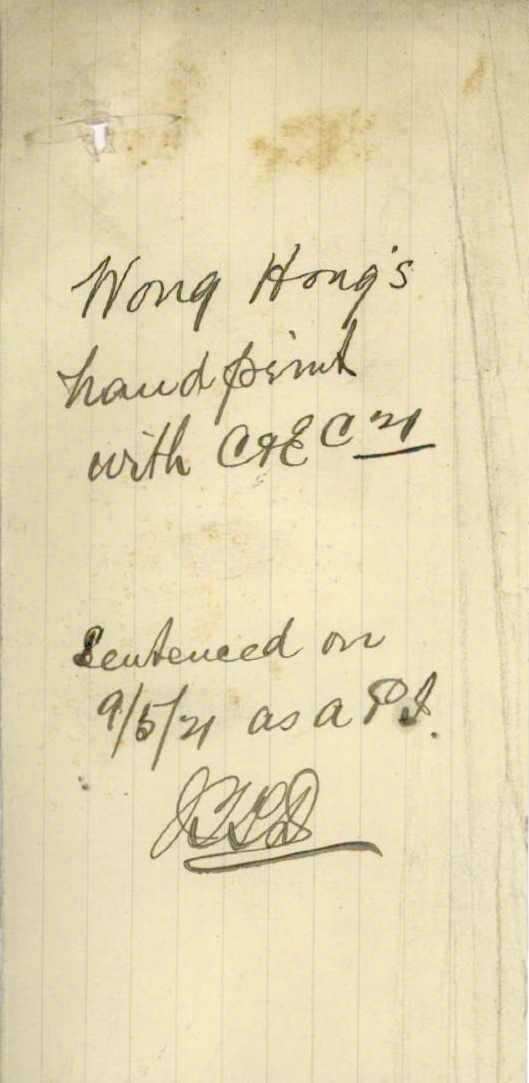 Wong Hong's
handprint
with C&E C 21
Sentenced on
9/5/21 as a P I.